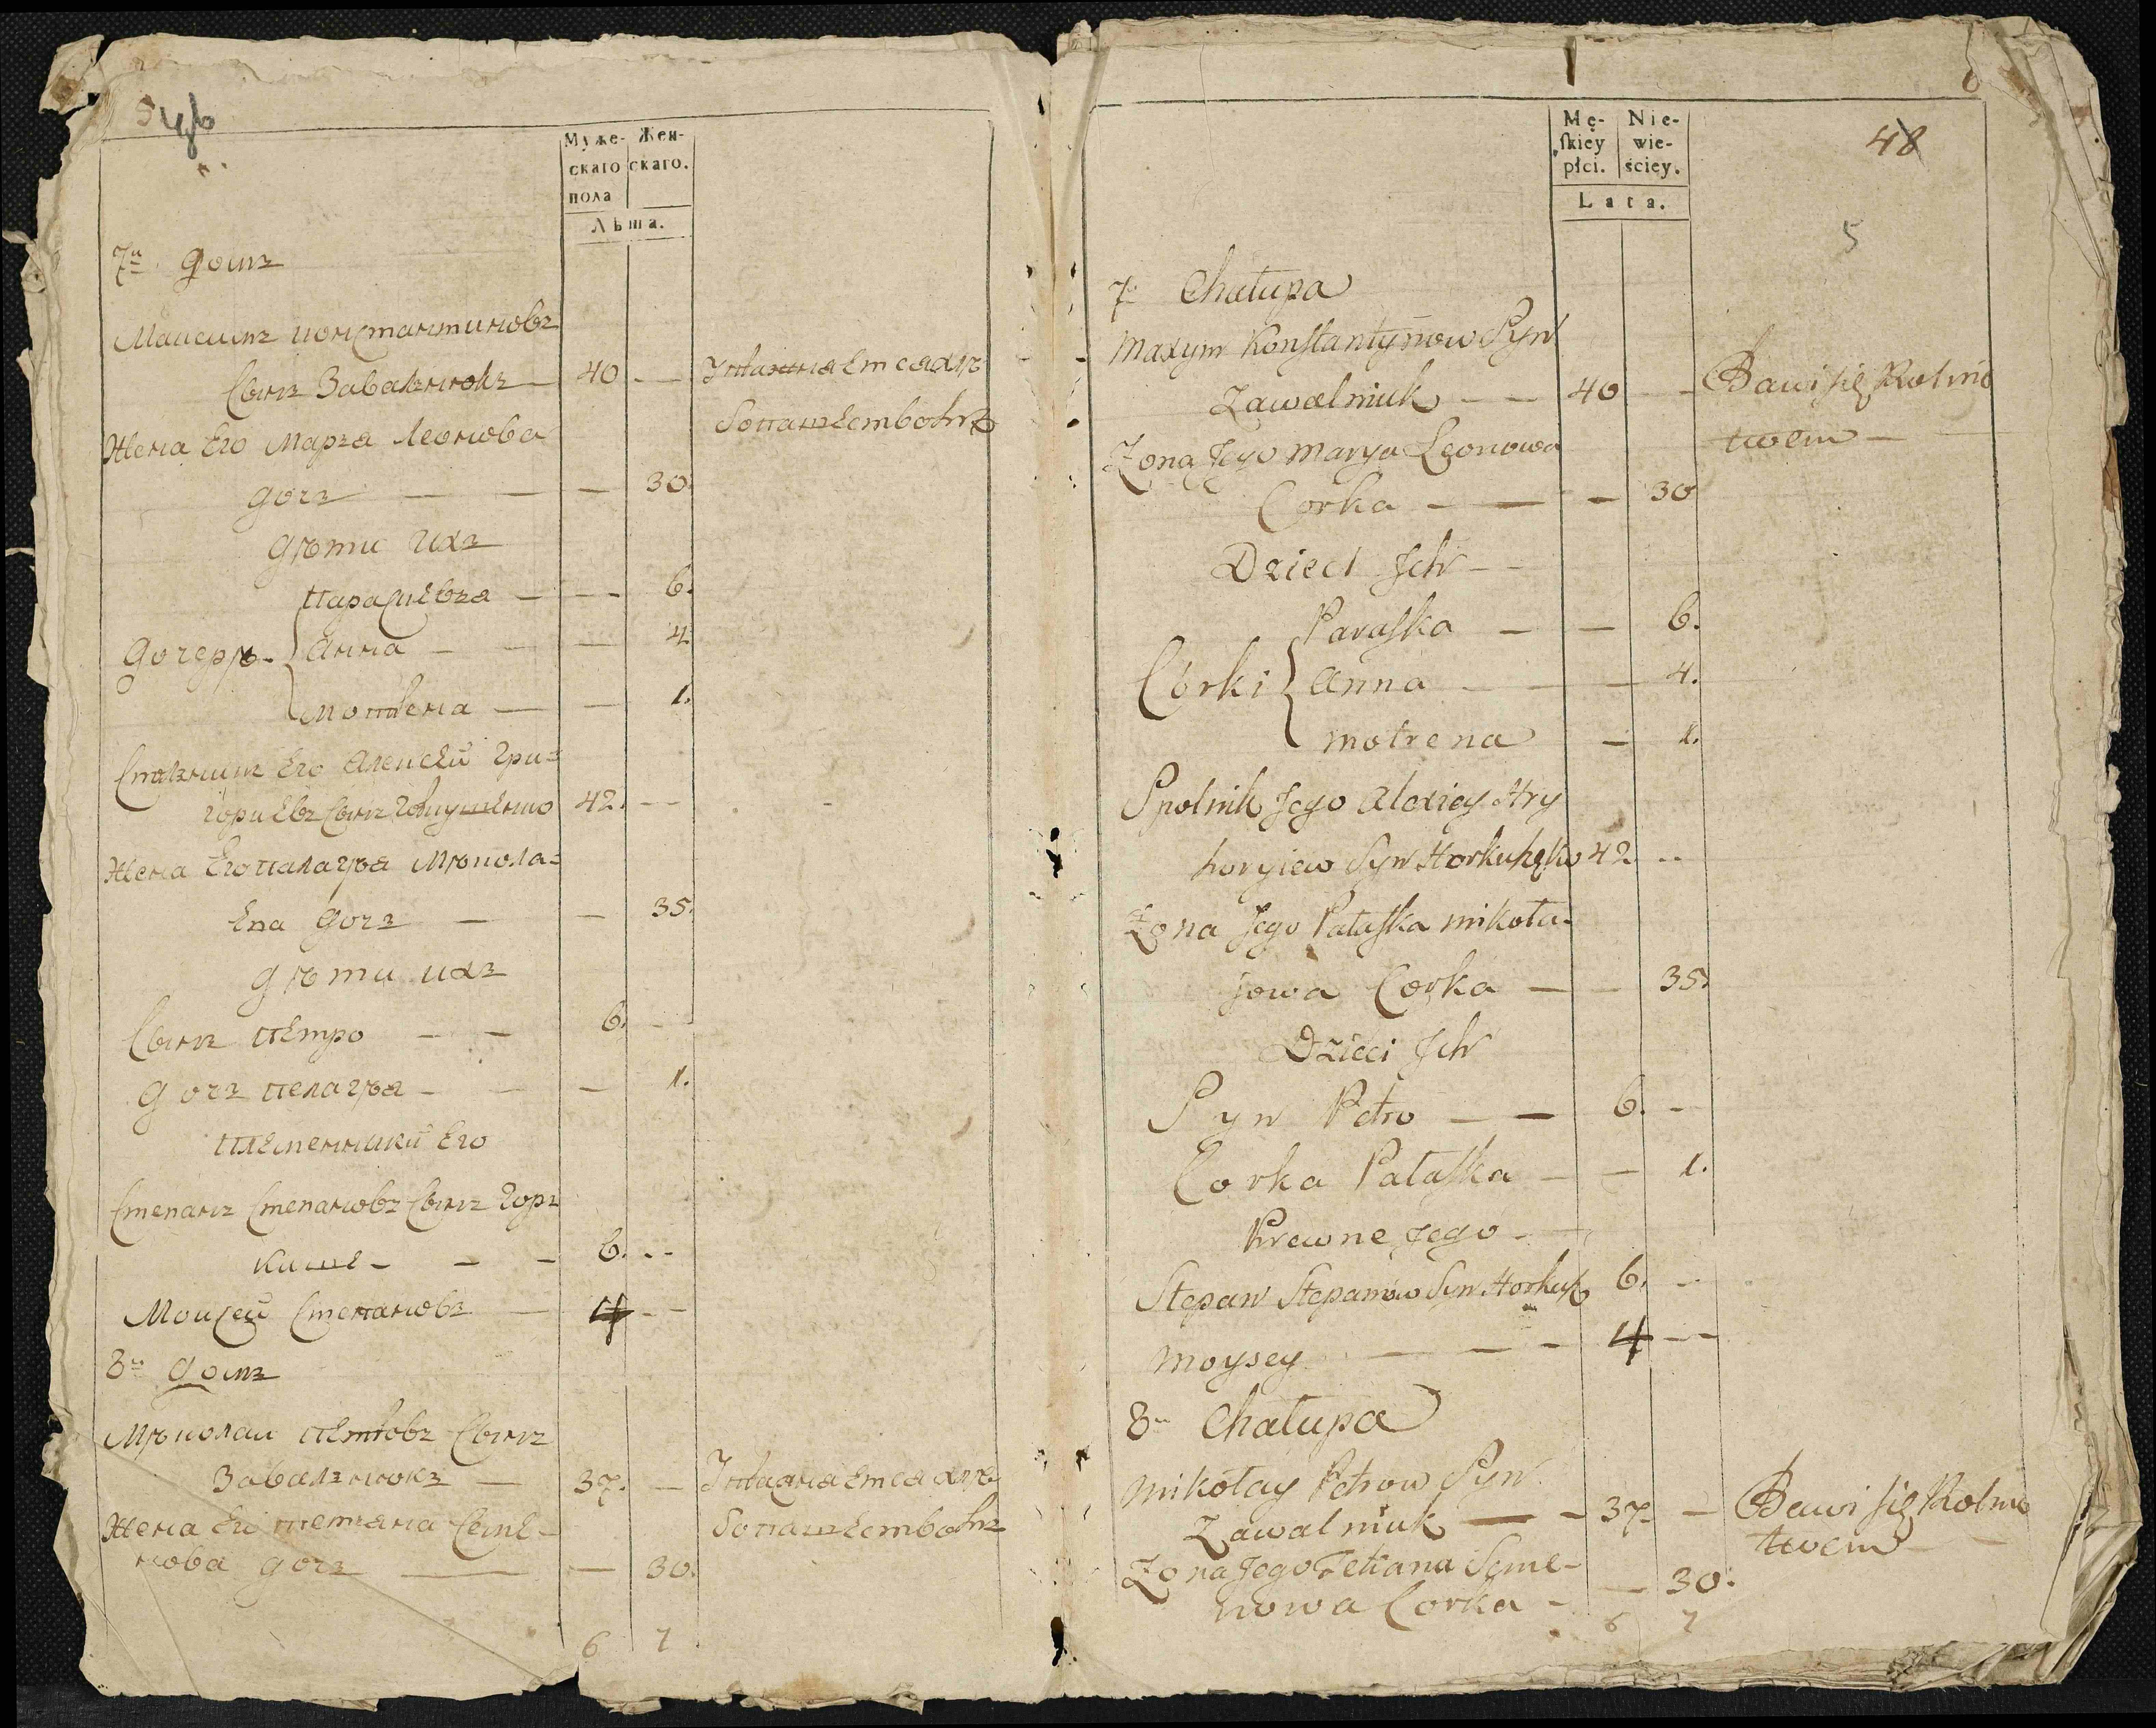 Муже-
скаго
пола
Жен-
скаго.
Лѣта.
7й домъ
Максимъ Константиновъ
Сынъ Завальнюкъ — 40 —
Упражняется хлѣ
бопашествомъ
Жена Его Марья Леонова
дочь — — — 30.
дѣти ихъ
Параскевья — — 6.
дочерѣ Анна — — 4
Мотрена — — 1.
Спольникъ Его Алексей Гри=
горьевъ Сынъ 42. —
Жена Его Палагѣя Мѣкола=
Ева дочь — — 35.
дѣти ихъ
Сынъ Петро — — 6. —
дочь Пелагѣя — — 1.
Племенники Его
Степанъ Степановъ Сынъ Гор
— — 6. --
Моисей Степановъ — 4 —
8й домъ
Мѣколай Петровъ Сынъ
Завальнюкъ — 37. —
Упражняется хлѣ
бопашествомъ
Жена Ег Петяна Семе-
нова дочь — — 30.
6 7
Mę-
skiey
płci.
Nie-
wie-
ściey.
Lata.
48
5
7. Chałupa
Maxym Konstantynow Syn
Zawalniuk — — 40 — —
Bawi się Rolnic
twem —
Zona Jego Marya Leonowa
Corka — — — 30
Dzieci Jch — —
Paraska — — 6.
Córki Anna — — 4.
Motrena — 1.
Spolnik Jego Alexiey Hry
horyiew Syn 42 --
Zona Jego Pałaska Mikoła-
jowa Corka — — 35.
Dzieci Jch
Syn Petro — — 6. -
Corka Pałaska — — 1.
Krewne Jego —
Stepan Stepanow Syn 6. —
Moysey — — - 4 — -
8. Chałupa
Mikołay Petrow Syn
Zawalniuk — - 37 - —
Bawi się Rolnic
twem —
Zona Jego Tetiana Seme-
nowa Corka - — 30.
6 7